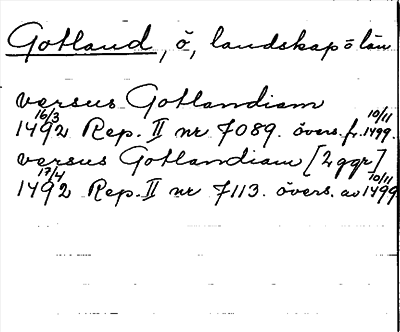 Gotland, ö, landskap o län
versus Gotlandiam
1492 16/3 Rep. II nr 7089. övers. fr. 10/11 1499.
versus Gotlandiam [2 ggr]
1492 17/4 Rep. II nr 7113. övers. av 10/11 1499.